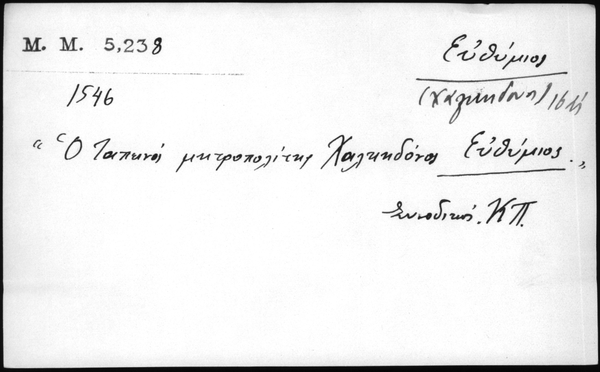 M. M. 5,238
Εὐθύμιος
1546
(Χαλκηδόνος)
"Ὁ Ταπεινὸς μητροπολίτης Χαλκηδόνος Εὐθύμιος."
Συνοδικός. ΚΠ.